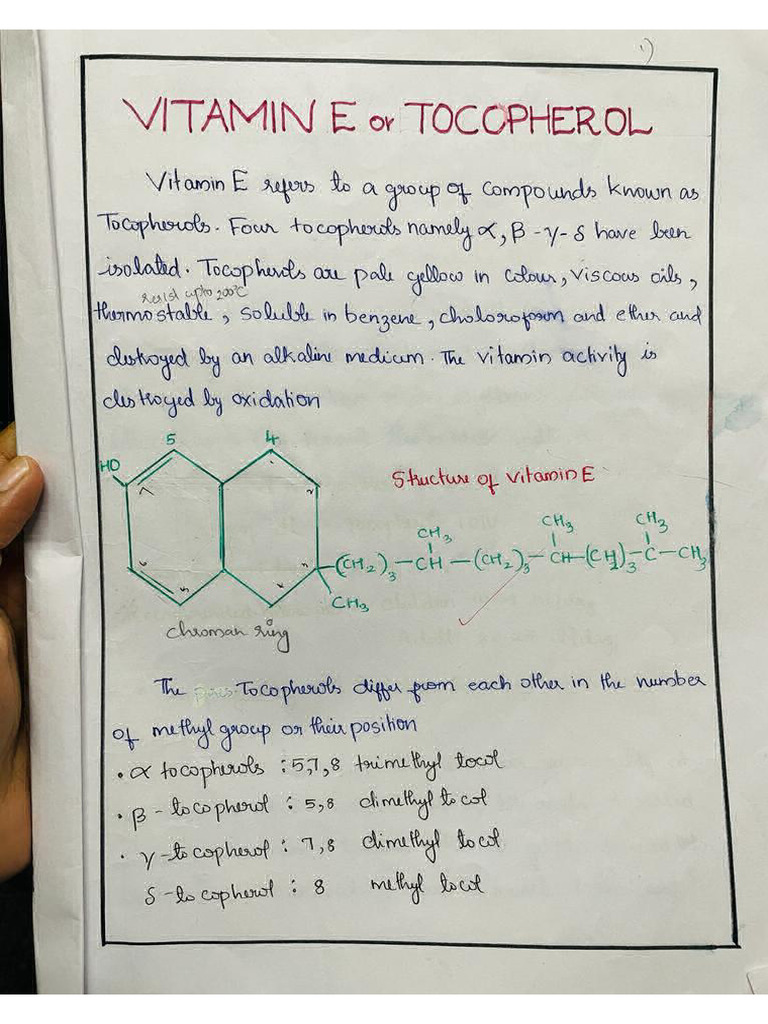 1)
VITAMIN E or TOCOPHEROL
Vitamin E refers to a group of compounds known as
Tocopherols. Four tocopherols namely α, β - γ - δ have been
isolated. Tocopherols are pale yellow in colour, viscous oils,
resist upto 200°C
thermostable, soluble in benzene, choloroform and ether and
destroyed by an alkaline medium. The vitamin activity is
destroyed by oxidation
5 4
HO
Structure of vitamin E
CH3 CH3 CH3
-(CH2)3-CH-(CH2)3-CH-(CH2)3-C-CH3
CH3
chroman ring
The Tocopherols differ from each other in the number
of methyl group or their position
• α tocopherols : 5,7,8 trimethyl tocol
• β - tocopherol : 5,8 dimethyl tocol
• γ-tocopherol : 7,8 dimethyl tocol
δ-tocopherol : 8 methyl tocol